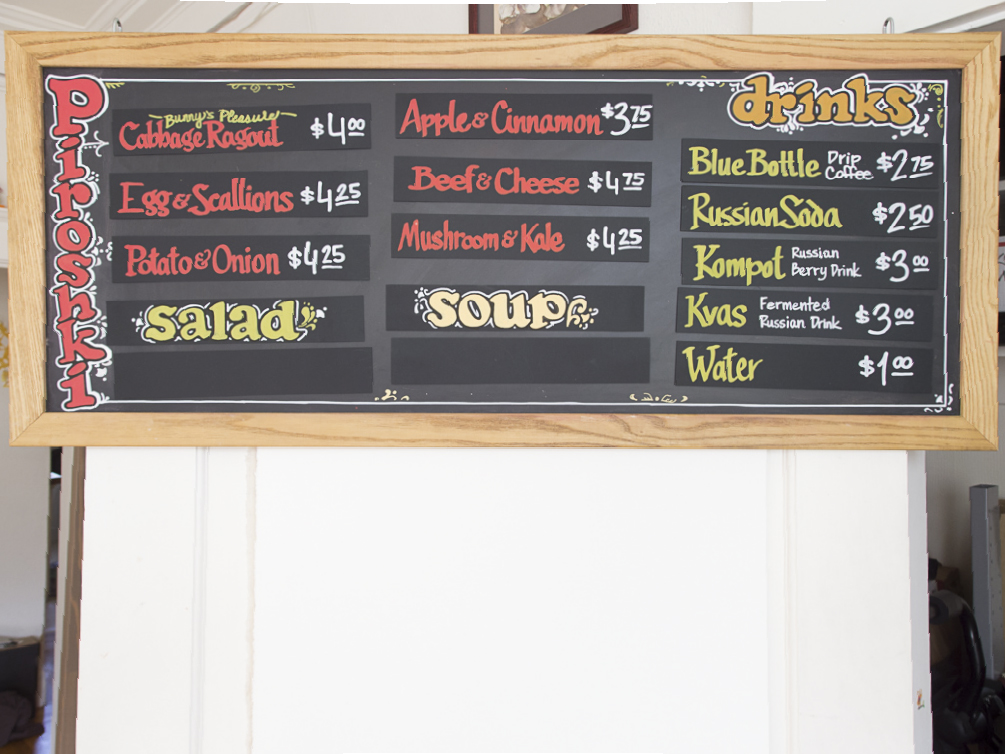 Piroshki
Bunny's Pleasure
Cabbage Ragout $4.00
Egg & Scallions $4.25
Potato & Onion $4.25
salad
Apple & Cinnamon $3.75
Beef & Cheese $4.75
Mushroom & Kale $4.25
soup
drinks
Blue Bottle Drip Coffee $2.75
Russian Soda $2.50
Kompot Russian Berry Drink $3.00
Kvas Fermented Russian Drink $3.00
Water $1.00